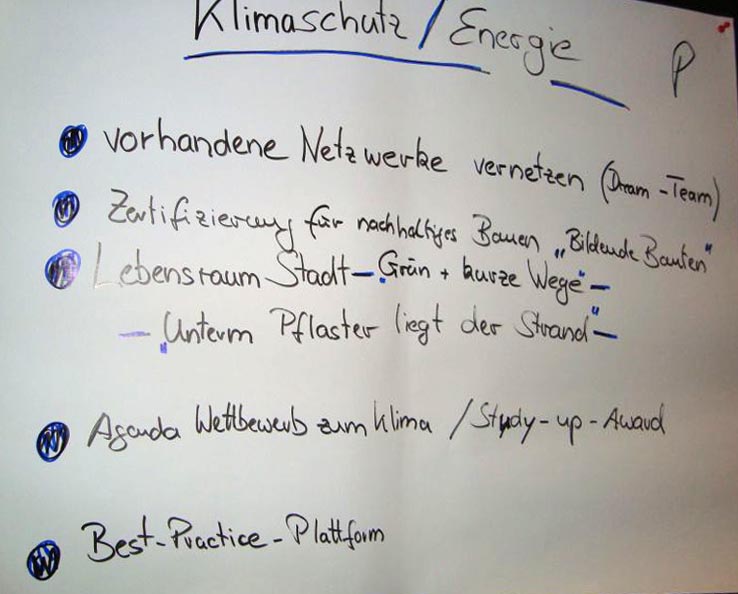 Klimaschutz / Energie
P
vorhandene Netzwerke vernetzen (Dream-Team)
Zertifizierung für nachhaltiges Bauen „Bildende Bauten"
Lebensraum Stadt – „Grün + kurze Wege" –
– „Unterm Pflaster liegt der Strand" –
Agenda Wettbewerb zum Klima / Study-up-Award
Best-Practice-Plattform